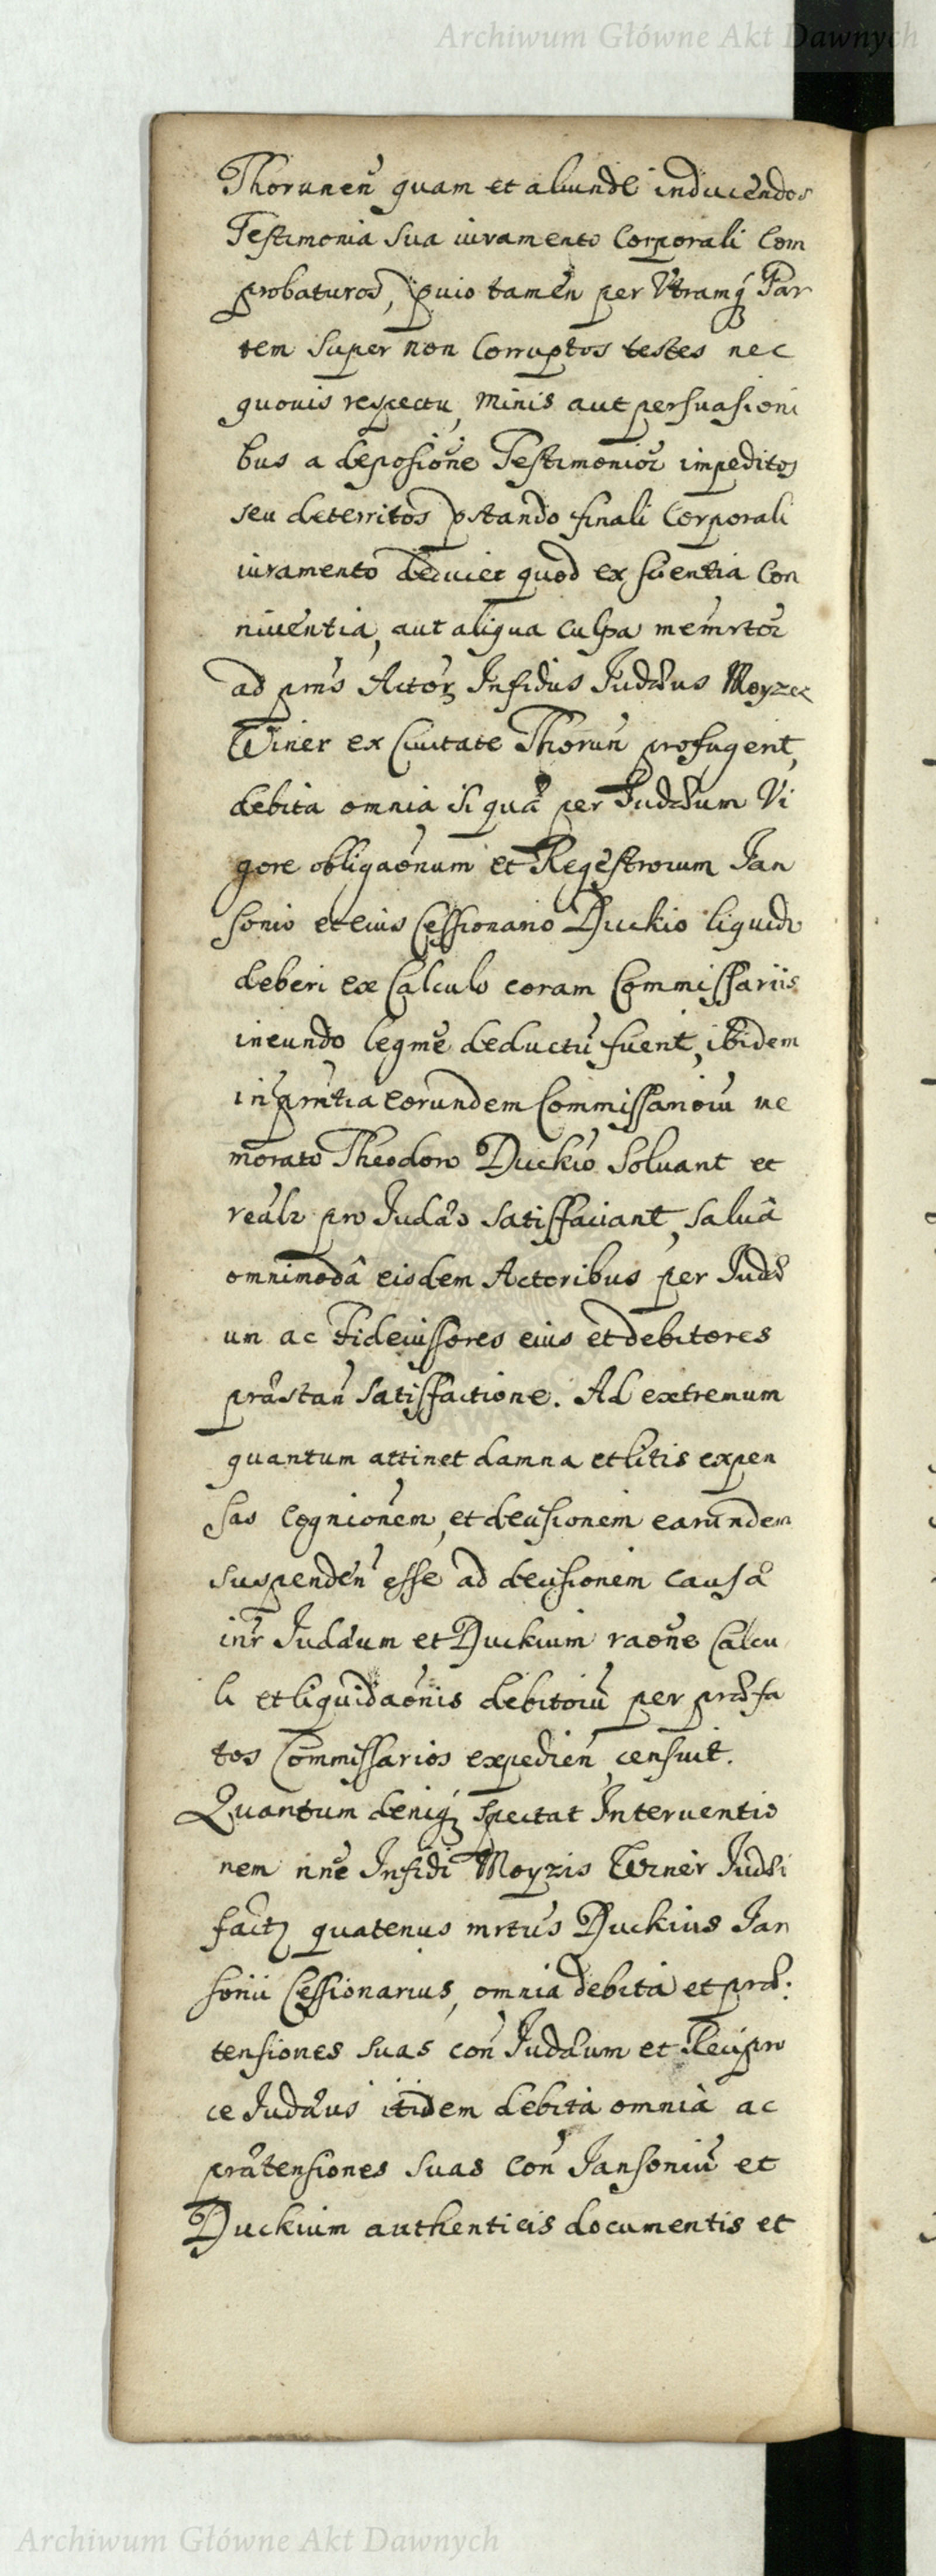 Archiwum Główne Akt Dawnych
Thorunen̄ quam et aliunde inducendos
Testimonia sua iuramento Corporali Com
probaturos, p̱uio tamen per Vtramq́ Par
tem super non Corruptos testes nec
quouis respectu, minis aut persuasioni
bus a deposiōne Testimonior̄ impeditos
seu deterritos p̱stando finali Corporali
iuramento deducet quod ex scientia Con
niuentia, aut aliqua culpa memrtor̄
ad pnīs Actor̄ Infidus Judæus Moyzes
Winer ex Ciuitate Thorun̄ profugerit,
debita omnia si quæ per Judæum Vi
gore obligaōnum et Regestrorum Jan
sonio et eius Cessionario Duckio liquido
deberi ex Calculo coram Commissariis
ineundo legme deductū fuerit, ibidem
in prn̄tia eorundem Commissarioru me
morato Theodoro Duckio Soluant et
realr pro Judæo satisfaciant, saluâ
omnimodâ eisdem Actoribus per Judæ
um ac Fideiussores eius et debitores
præstan̄ satisfactione. Ad extremum
quantum attinet damna et litis expen
sas Cognionem, et decisionem earundem
suspenden̄ esse ad decisionem causæ
inr̄ Judæum et Duckium raōne Calcu
li et liquidaōnis debitorū per præfa
tos Commissarios expedien̄ censuit.
Quantum deniq́ spectat Interuentio
nem nn̄e Infidi Moyzis Winer Judæi
factꝫ quatenus mrtus Duckius Jan
sonii Cessionarius, omnia debita et præ:
tensiones suas con̄ Judæum et Recipro
ce Judæus itidem debita omnia ac
prætensiones suas con̄ Jansoniū et
Duckium authenticis documentis et
Archiwum Główne Akt Dawnych